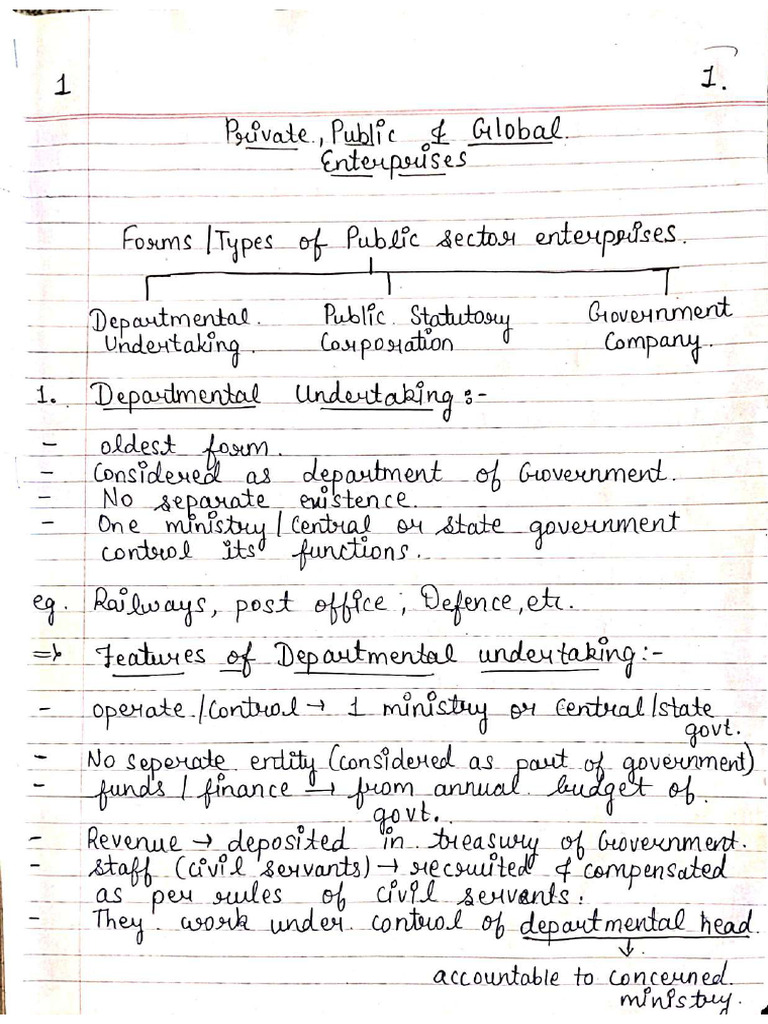 1
1.
Private, Public & Global
Enterprises
Forms / Types of Public sector enterprises.
Departmental Undertaking.
Public Statutory Corporation
Government Company.
1. Departmental Undertaking :-
- oldest form.
- Considered as department of Government.
- No separate existence.
- One ministry / Central or state government
control its functions.
eg. Railways, post office, Defence, etc.
⇒ Features of Departmental undertaking :-
- operate / Control → 1 ministry or central/state
govt.
- No seperate entity (considered as part of government)
- funds / finance → from annual budget of
govt.
- Revenue → deposited in treasury of Government.
- Staff (civil servants) → recruited & compensated
as per rules of civil servants.
- They work under control of departmental head.
↓
accountable to concerned
ministry.